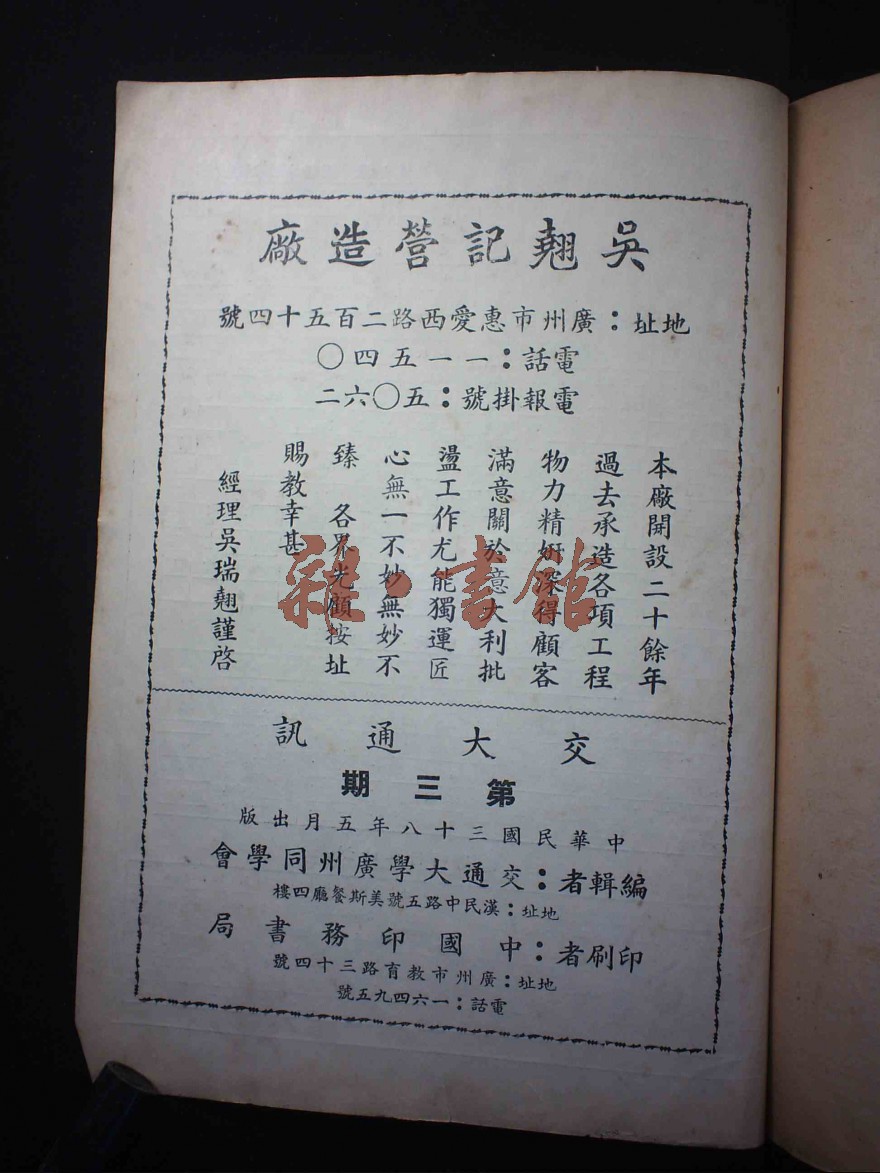 吳翹記營造廠
地址：廣州市惠愛西路二百五十四號
電話：一一五四〇
電報掛號：五〇六二
本廠開設二十餘年
過去承造各項工程
物力精妍深得顧客
滿意關於意大利批
盪工作尤能獨運匠
心無一不妙無妙不
臻　各界光顧按址
賜教幸甚
經理吳瑞翹謹啓
雜·書館
交大通訊
第三期
中華民國三十八年五月出版
編輯者：交通大學廣州同學會
地址：漢民中路五號美斯餐廳四樓
印刷者：中國印務書局
地址：廣州市教育路三十四號
電話：一六四九五號